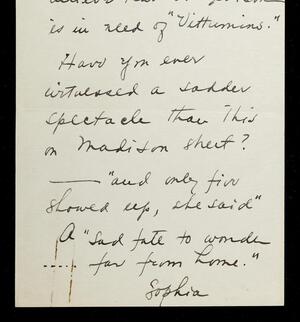 is in need of "Vittumins."
Have you ever
witnessed a sadder
spectacle than This
on Madison street?
— "and only five
showed up, she said"
A "Sad fate to wonder
..... far from home."
Sophia